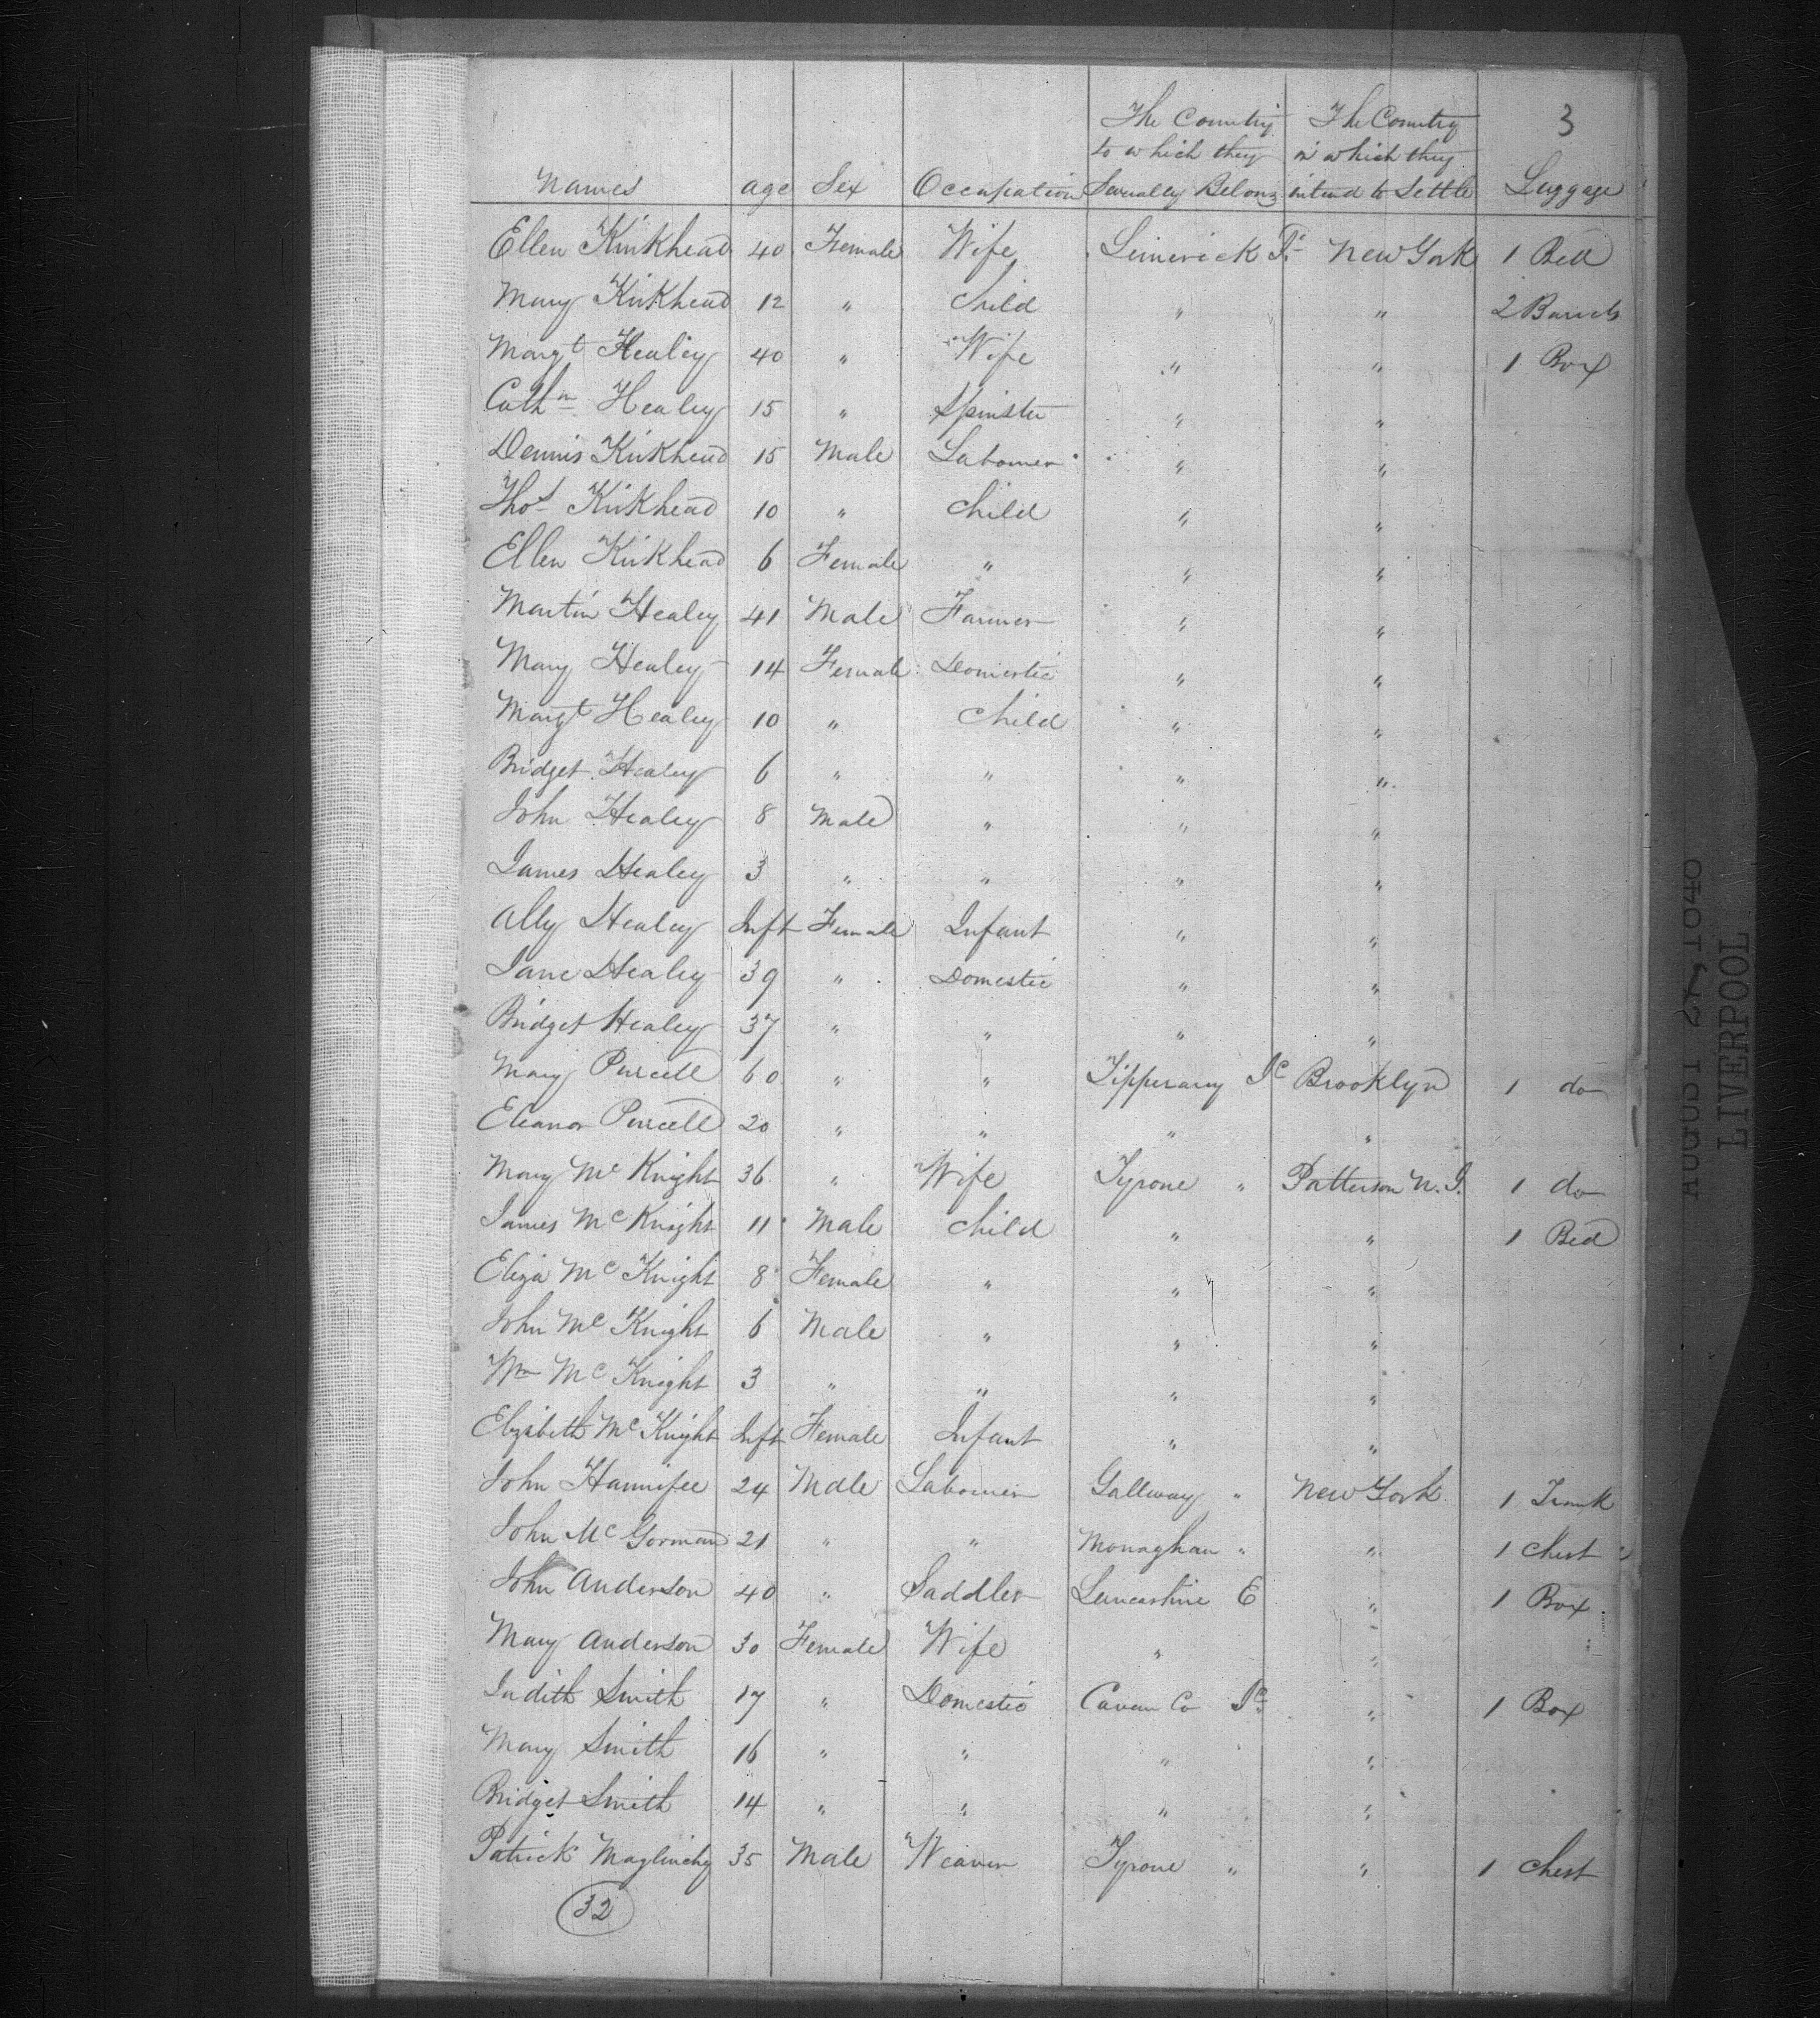 3
The Country The Country
to which they in which they
Names age Sex Occupation Severally Belong intend to Settle Luggage
Ellen Kirkhead 40 Female Wife Limerick Id New York 1 Bed
Mary Kirkhead 12 " Child " " 2 Barrels
Margt Healey 40 " Wife " " 1 Box
Cathn Healey 15 " Spinster " "
Dennis Kirkhead 15 Male Labourer " "
Thos Kirkhead 10 " Child " "
Ellen Kirkhead 6 Female " " "
Martin Healey 41 Male Farmer " "
Mary Healey 14 Female Domestic " "
Margt Healey 10 " Child " "
Bridget Healey 6 " " " "
John Healey 8 Male " " "
James Healey 3 " " " "
Ally Healey Inft Female Infant " "
Jane Healey 39 " Domestic " "
Bridget Healey 37 " " " "
Mary Purcell 60 " " Tipperary Id Brooklyn 1 do
Eleanor Purcell 20 " " " "
Mary Mc Knight 36 " Wife Tyrone " Patterson N.J. 1 do
James Mc Knight 11 Male Child " " 1 Bed
Eliza Mc Knight 8 Female " " "
John Mc Knight 6 Male " " "
Wm Mc Knight 3 " " " "
Elizabeth Mc Knight Inft Female Infant " "
John Hannifee 24 Male Labourer Gallway " New York 1 Trunk
John Mc Gorman 21 " " Monaghan " " 1 Chest
John Anderson 40 " Saddler Lancashire E " 1 Box
Mary Anderson 30 Female Wife " "
Judith Smith 17 " Domestic Cavan Co Id " 1 Box
Mary Smith 16 " " " "
Bridget Smith 14 " " " "
Patrick Maglinchy 35 Male Weaver Tyrone " " 1 Chest
32
LIVERPOOL